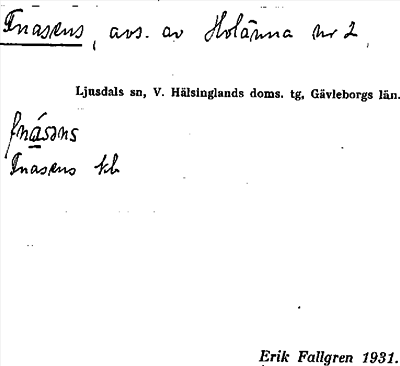 Fnasens, avs. av Holänna nr 2,
Ljusdals sn, V. Hälsinglands doms. tg, Gävleborgs län.
fnásəns
Fnasens kb
Erik Fallgren 1931.